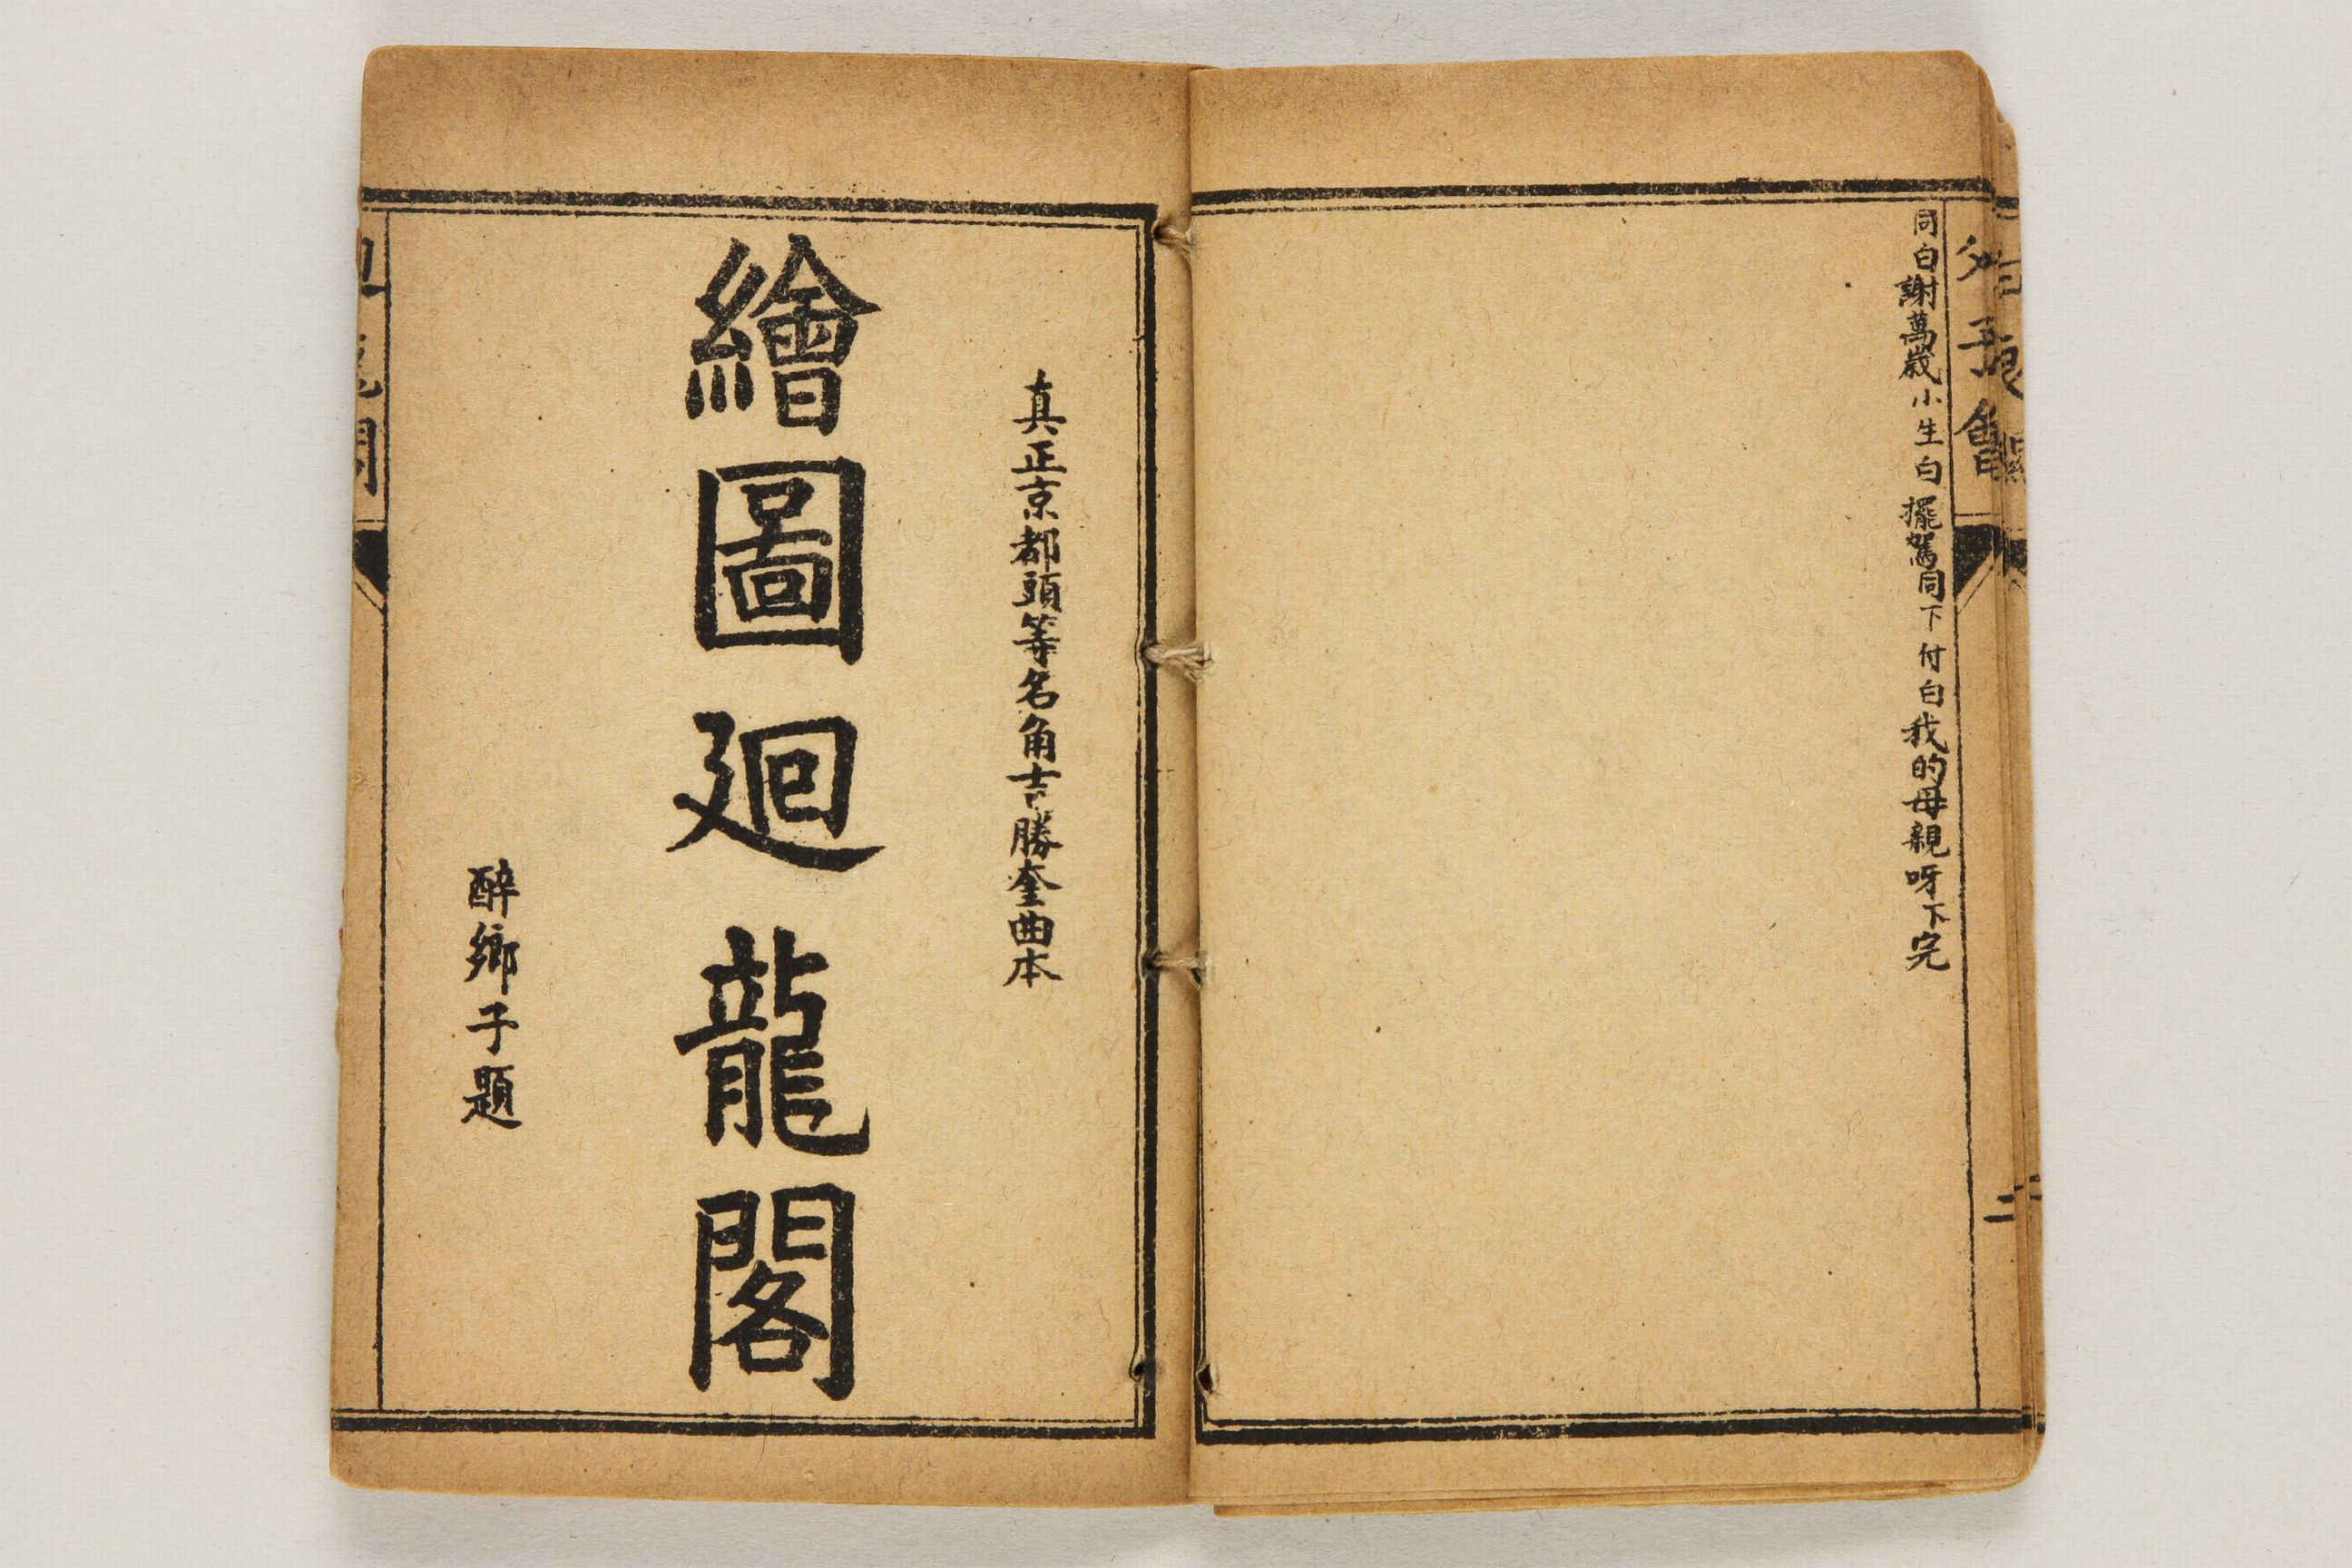 父子會
二
同白謝萬歲小生白擺駕同下付白我的母親呀下完
真正京都頭等名角吉勝奎曲本
繪圖廻龍閣
醉鄉子題